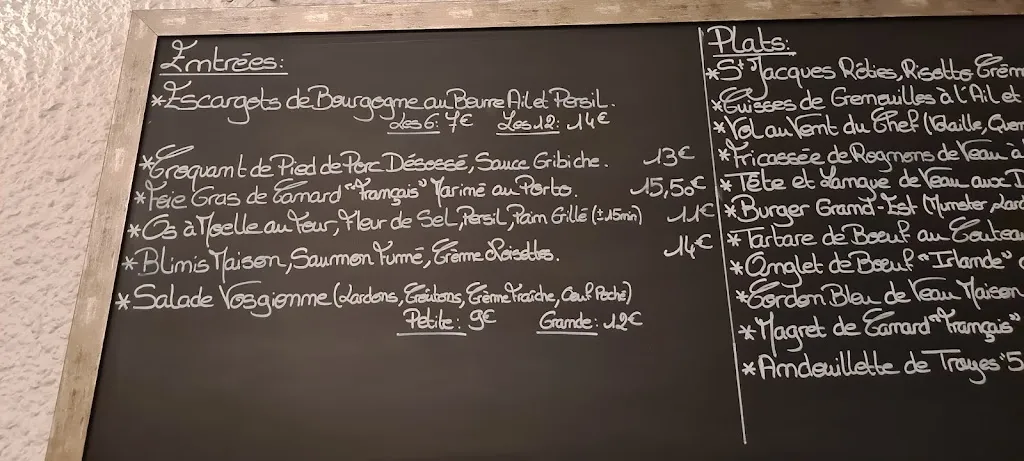 Entrées:
*Escargots de Bourgogne au Beurre Ail et Persil.
Les 6: 7€ Les 12: 14€
*Croquant de Pied de Porc Désossé, Sauce Gribiche. 13€
*Foie Gras de Canard "Français" Mariné au Porto. 15,50€
*Os à Moelle au Four, Fleur de Sel, Persil, Pain Grillé (±15min) 11€
*Blinis Maison, Saumon Fumé, Crème Ciboulette. 14€
*Salade Vosgienne (Lardons, Croûtons, Crème Fraîche, Oeuf Poché)
Petite: 9€ Grande: 12€
Plats:
*St Jacques Rôties, Risotto Crém
*Cuisses de Grenouilles à l'Ail et
*Vol au Vent du Chef (Volaille, Quen
*Fricassée de Rognons de Veau à
*Tête et Langue de Veau aux
*Burger Grand-Est (Munster, Lard
*Tartare de Boeuf au Couteau
*Onglet de Boeuf "Irlande"
*Cordon Bleu de Veau Maison
*Magret de Canard "Français"
*Andouillette de Troyes "5